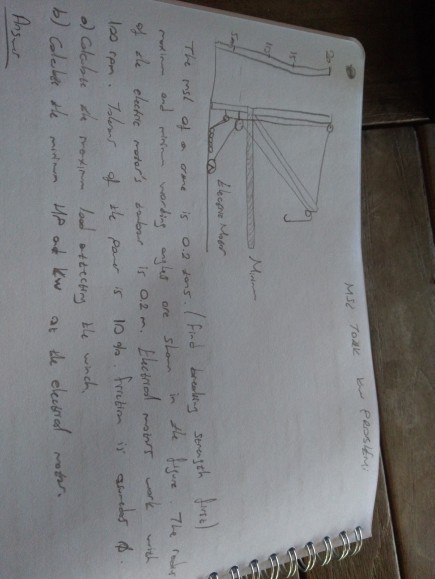 MSL TORK KW PROBLEM.
20
15
10
5m
Electric Motor
The msl of a crane is 0.2 tons. (find breaking strength first)
maximum and minimum working angles are shown in the figure. The radius
of the electric motor's tanbur is 0.2 m. Electrical motors work with
100 rpm. of the power is 10 %. Friction is
a) Calculate the maximum load affecting the winch.
b) Calculate the minimum HP and KW at the electrical motor.
Answer